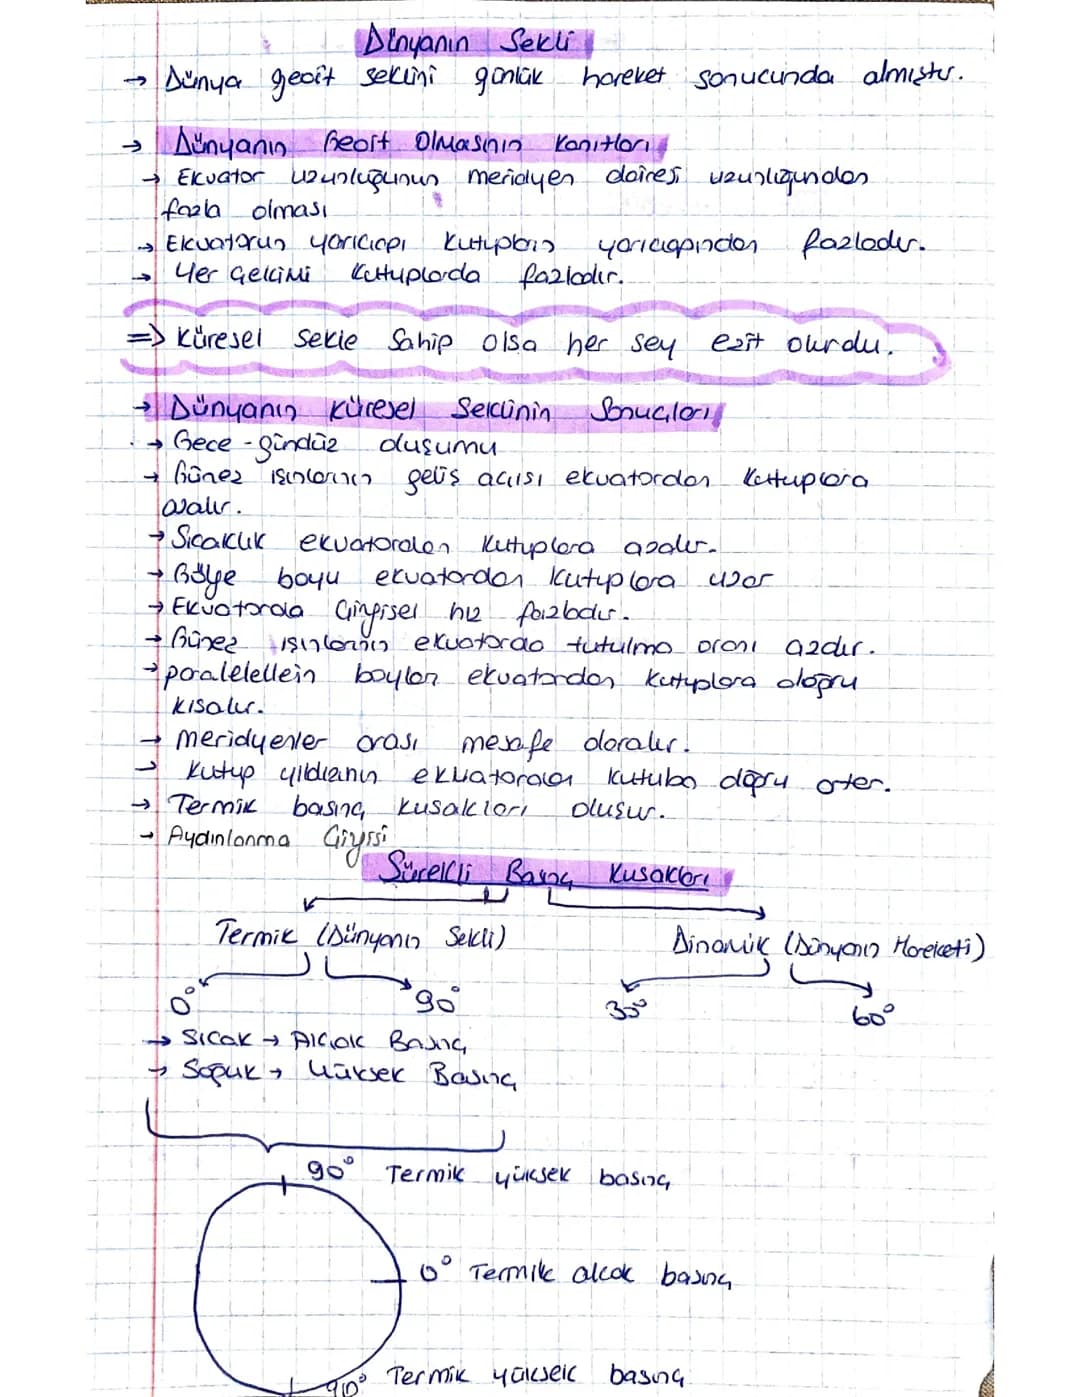 Dünyanın Sekli
→ Dünya geoit seklini günlük hareket sonucunda almıştır.
→ Dünyanın Geoit Olmasının Kanıtları
→ Ekvator uzunluğunun meridyen dairesi uzunlığından
fazla olması
→ Ekvatorun yarıçapı kutupların yarıcapından fazladır.
→ Yer Çekimi Kutuplarda fazladır.
=> Küresel Sekle Sahip olsa her sey eşit olurdu.
→ Dünyanın Küresel Seklinin Sonuçları
→ Gece - gündüz oluşumu
→ Güneş ışınlarının geliş açısı ekvatordan Kutuplara
azalır.
→ Sıcaklık ekvatordan Kutuplara azalır.
→ Gölge boyu ekvatordan Kutuplara uzar
→ Ekvatorda Çizgisel hız fazladır.
→ Güneş ışınlarının ekvatorda tutulma oranı azdır.
→ paralelellein boyları ekvatordan Kutuplara doğru
kısalır.
→ meridyenler arası mesafe daralır.
→ Kutup yıldızının ekvatordan Kutuba doğru artar.
→ Termik basınç kusakları oluşur.
→ Aydınlanma Çizgisi
Sürekli Basınç Kusakları
Termik (Dünyanın Sekli) Dinamik (Dünyanın Hareketi)
0° 90° 30° 60°
→ Sıcak → Alçak Basınç
→ Soğuk → Yüksek Basınç
90° Termik yüksek basınç
0° Termik alcak basınç
90° Termik yüksek basınç